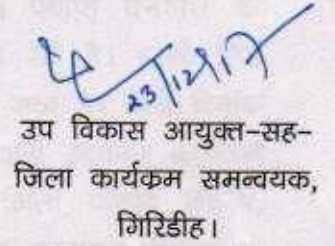 23/12/17
उप विकास आयुक्त-सह-
जिला कार्यक्रम समन्वयक,
गिरिडीह।